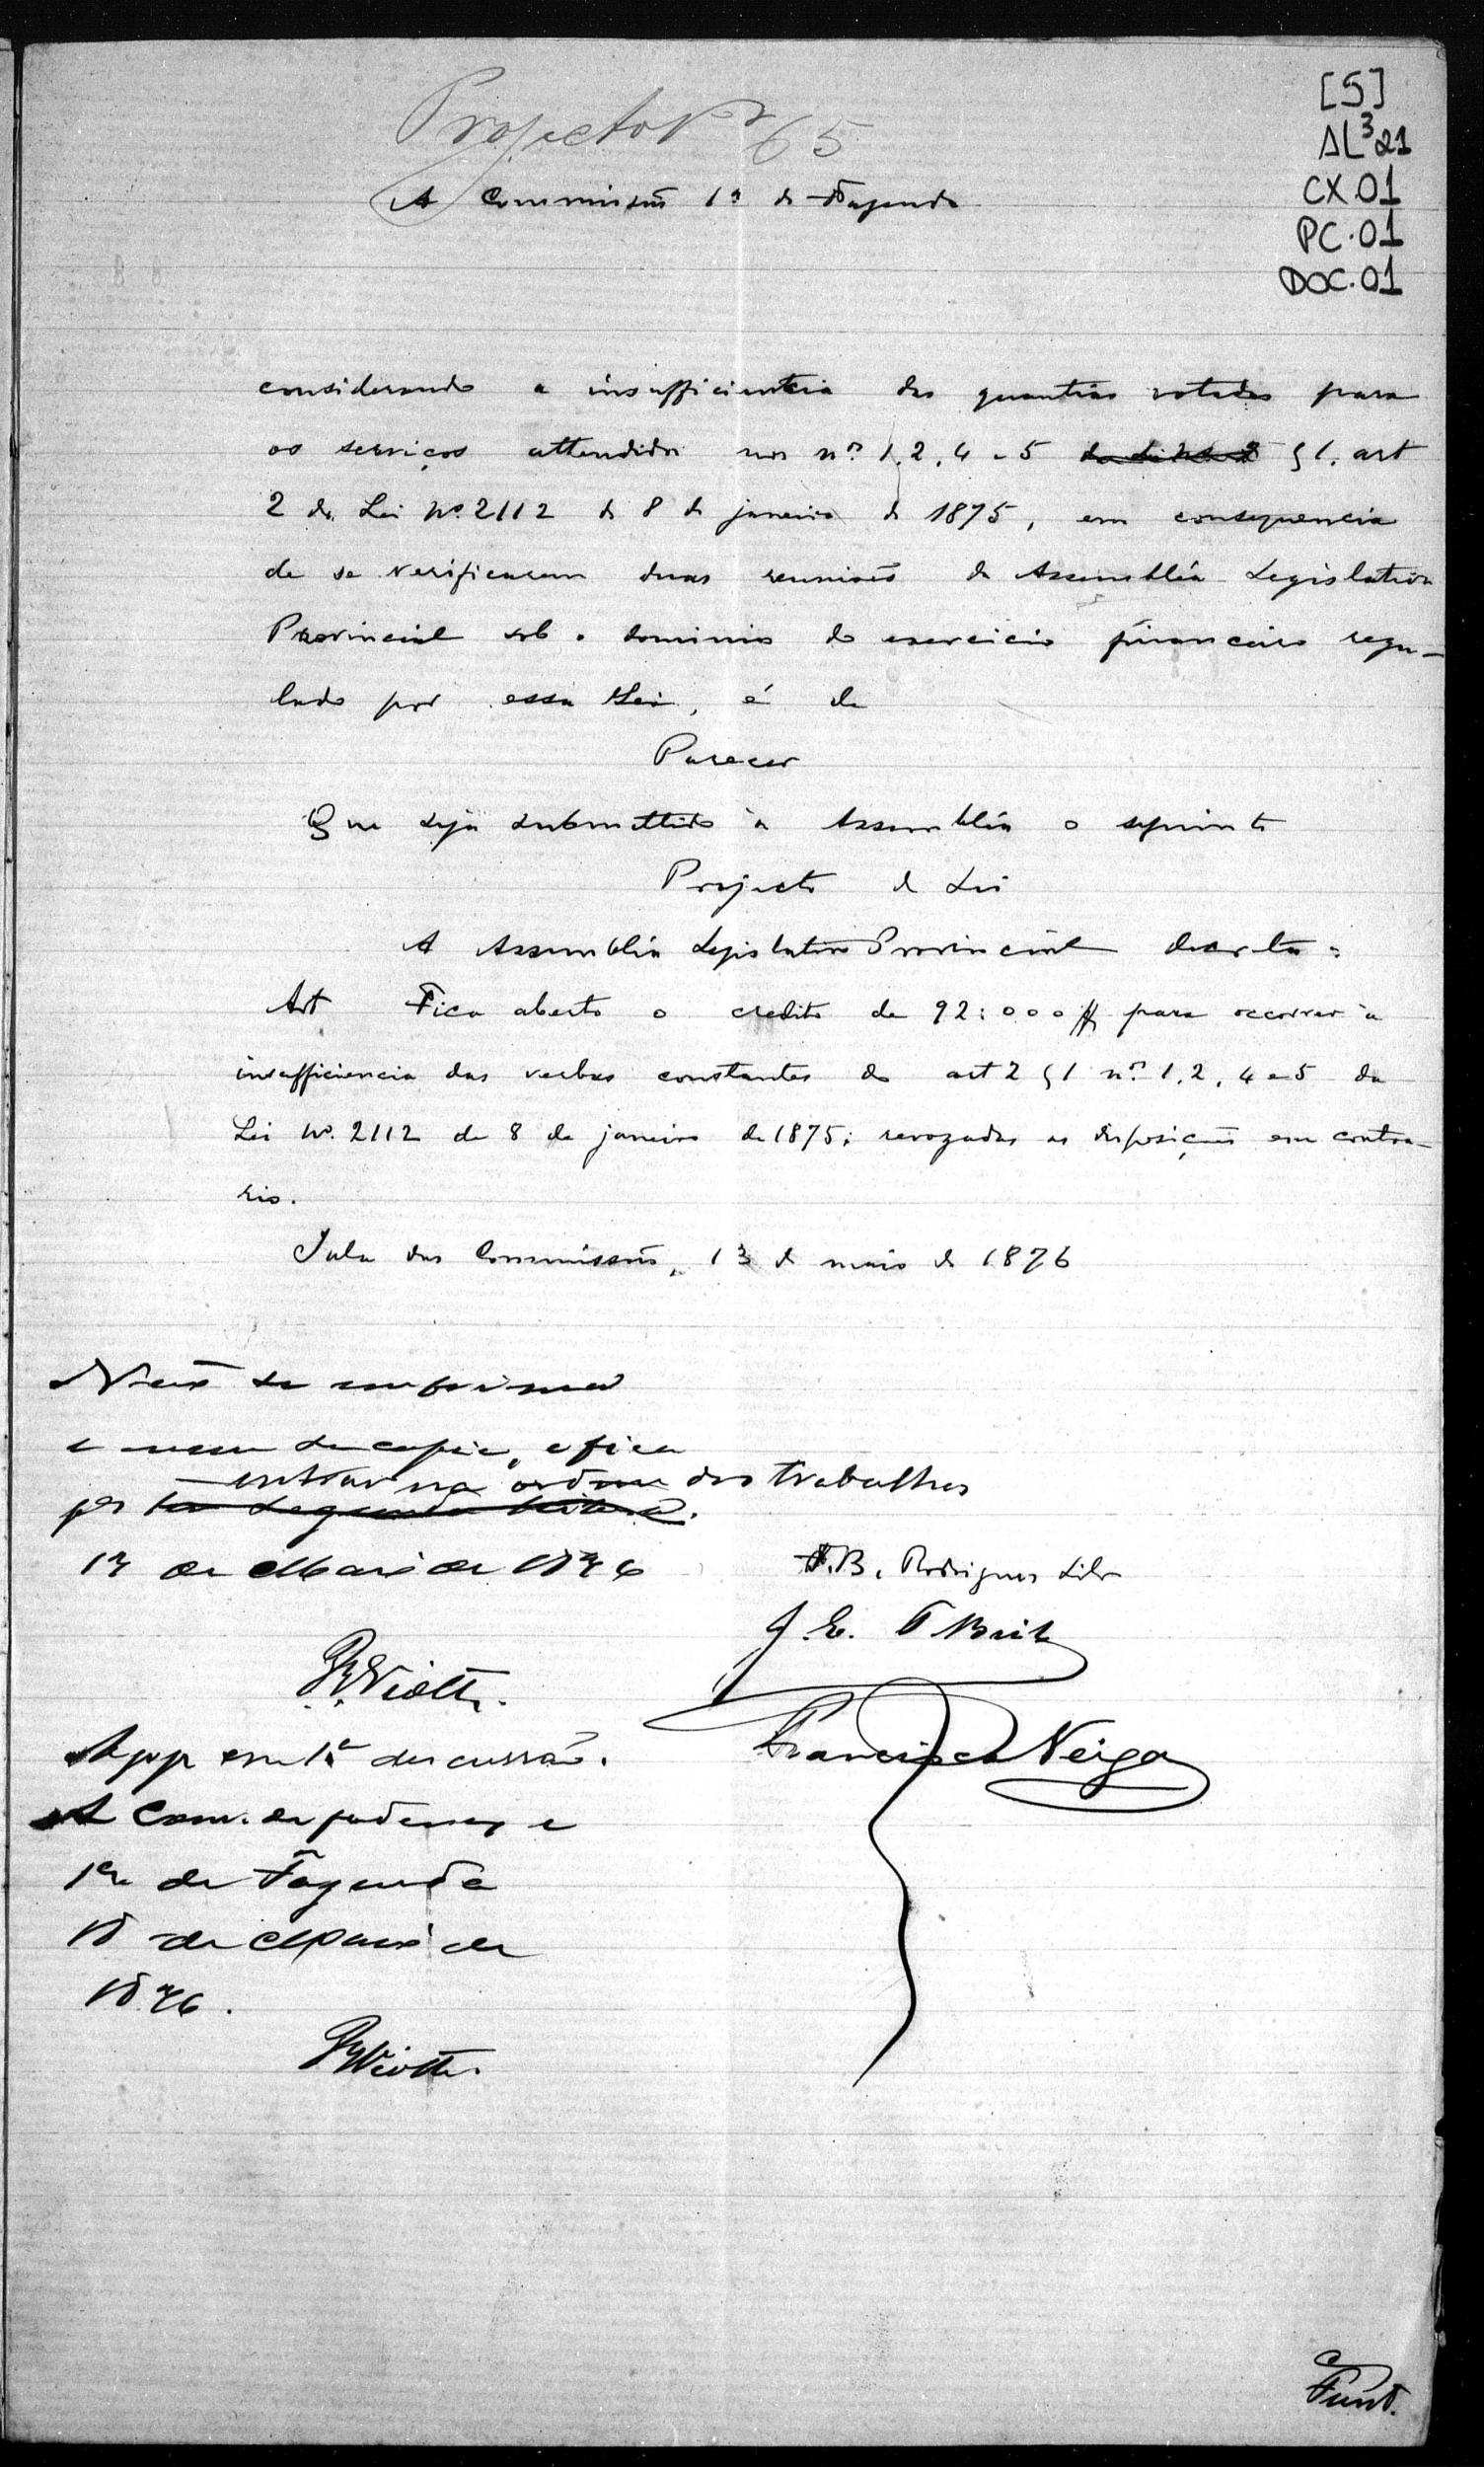 Projecto Nº 65
[5]
AL³21
CX.01
PC.01
DOC.01
A Commissão 1ª de Fazenda
considerando a insufficientcia das quantias votadas para
os serviços attendidos nos nos 1, 2, 4 e 5 § 1. art
2 da Lei Nº 2112 de 8 de janeiro de 1875, em consequencia
de se verificarem duas reuniões da Assembléa Legislativa
Provincial sob o dominio do exercicio financeiro regu-
lado por essa Lei, é de
Parecer
Que seja submettido à Assembléa o seguinte
Projecto de Lei
A Assembléa Legislativa Provincial decreta:
Art Fica aberto o credito de 92:000$ para occorrer à
insufficiencia das verbas constantes do art 2 § 1 nos 1, 2, 4 e 5 da
Lei Nº 2112 de 8 de janeiro de 1875; revogadas as disposições em contra-
rio.
Sala das Commissões, 13 de maio de 1876
Não se imprima
e nem se copie, e fica
entrar na ordem dos trabalhos
pª
de Maio de 1876
F.B. Rodrigues Silva
J. E. T Brito
Francisco Veiga
Viotti.
App em 1ª discussão.
A Com. de poderes e
1ª de Fazenda
18 de Maio de
1876.
Viotti.